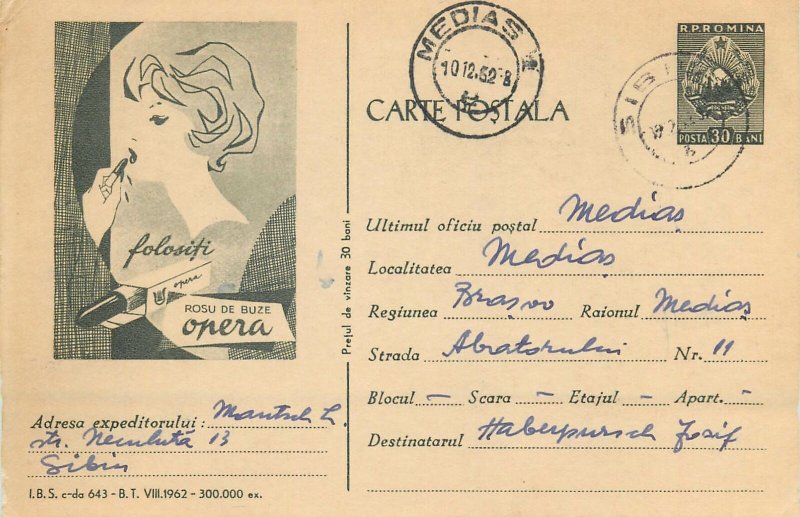 folosiți
opera
ROSU DE BUZE
opera
Adresa expeditorului : Mantsch L.
str. Neculuță 13
Sibiu
I.B.S. c-da 643 - B.T. VIII.1962 - 300.000 ex.
Prețul de vînzare 30 bani
MEDIAS
10.12.62-8
R.P.ROMINA
POSTA 30 BANI
SIBIU
CARTE POSTALA
Ultimul oficiu poștal Mediaș
Localitatea Mediaș
Regiunea Brașov Raionul Mediaș
Strada Abatorului Nr. 11
Blocul – Scara – Etajul – Apart. –
Destinatarul Haberpursch Josif